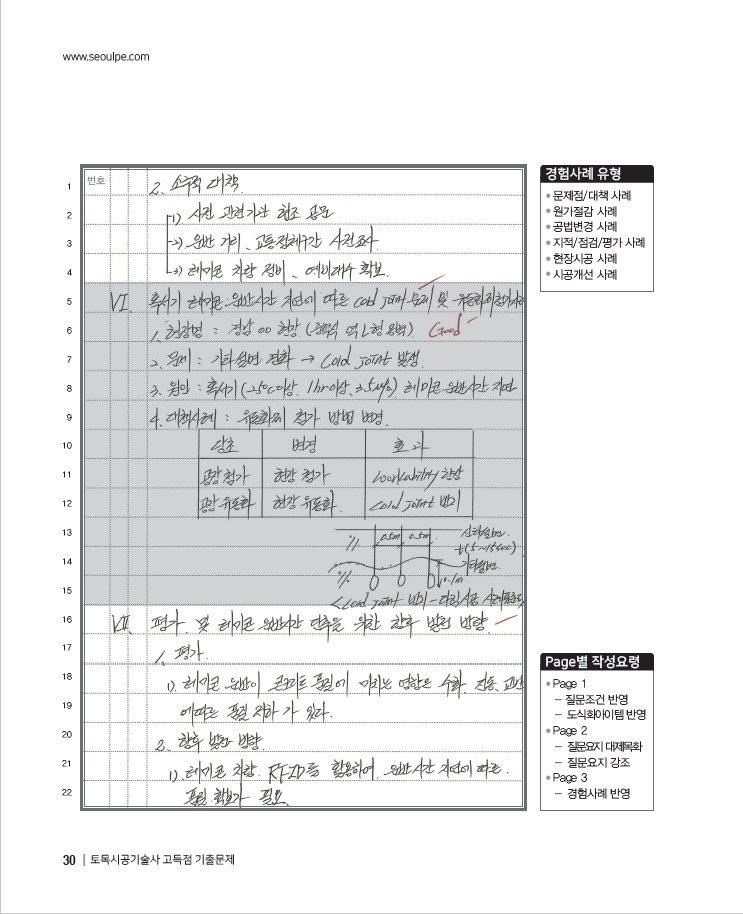 www.seoulpe.com
번호
1
2. 소극적 대책
2
1) 사전 관련기관 협조 공문
3
2) 운반 거리, 교통정체구간 사전조사
4
3) 레미콘 차량 정비, 예비대수 확보
5
VI. 혹서기 레미콘 운반시간 지연에 따른 Cold Joint 문제 및 유동화제 첨가사례
6
1. 현장명 : 경남 00 현장 (역L형 옹벽) Good
7
2. 문제 : 기타설면 경화 → Cold Joint 발생
8
3. 원인 : 혹서기 (25℃이상, 1hr이상, ) 레미콘 운반시간 지연
9
4. 대책사례 : 유동화제 첨가 방법 변경
10
당초 변경 효과
11
공장첨가 현장 첨가 Workability 향상
12
공장유동화 현장유동화 Cold Joint 방지
13
0.5m 0.5m 신타설면
14
(5~15sec)
기타설면
0.1m
15
<Cold Joint 방지 - 다짐시공
16
VII. 평가 및 레미콘 운반시간 단축을 위한 향후 발전 방향
17
1. 평가
18
1) 레미콘 운반이 콘크리트 품질에 미치는 영향은 수화, 진동, 교반
19
에 따른 품질 저하가 있다.
20
2. 향후 발전 방향
21
1) 레미콘 차량 RFID를 활용하여, 운반시간 지연에 따른
22
품질 확보가 필요.
경험사례 유형
• 문제점/대책 사례
• 원가절감 사례
• 공법변경 사례
• 지적/점검/평가 사례
• 현장시공 사례
• 시공개선 사례
Page별 작성요령
• Page 1
– 질문조건 반영
– 도식화아이템 반영
• Page 2
– 질문요지 대제목화
– 질문요지 강조
• Page 3
– 경험사례 반영
30 | 토목시공기술사 고득점 기출문제